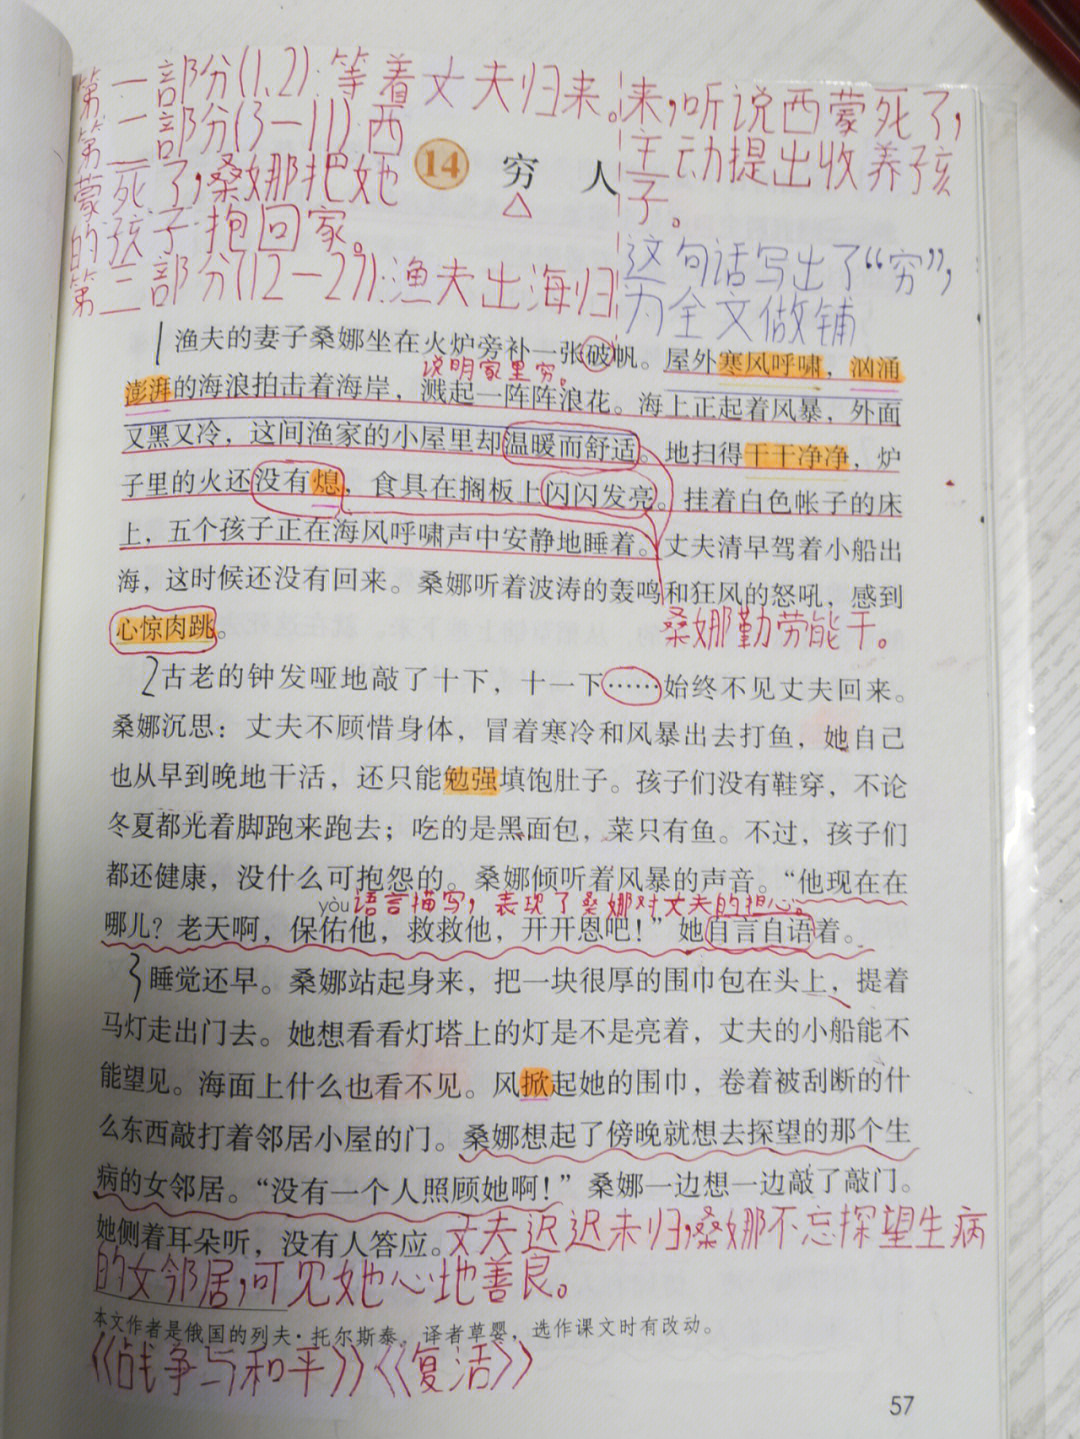 第一部分(1、2):等着丈夫归来。
第二部分(3—11):西
蒙死了,桑娜把她
的孩子抱回家。
第三部分(12—27):渔夫出海归
来,听说西蒙死了,
主动提出收养孩
子。
14 穷人
这句话写出了“穷”,
为全文做铺
1渔夫的妻子桑娜坐在火炉旁补一张破帆。屋外寒风呼啸，汹涌
说明家里穷。
澎湃的海浪拍击着海岸，溅起一阵阵浪花。海上正起着风暴，外面
又黑又冷，这间渔家的小屋里却温暖而舒适。地扫得干干净净，炉
子里的火还没有熄，食具在搁板上闪闪发亮。挂着白色帐子的床
上，五个孩子正在海风呼啸声中安静地睡着。丈夫清早驾着小船出
海，这时候还没有回来。桑娜听着波涛的轰鸣和狂风的怒吼，感到
心惊肉跳。
桑娜勤劳能干。
2古老的钟发哑地敲了十下，十一下……始终不见丈夫回来。
桑娜沉思：丈夫不顾惜身体，冒着寒冷和风暴出去打鱼，她自己
也从早到晚地干活，还只能勉强填饱肚子。孩子们没有鞋穿，不论
冬夏都光着脚跑来跑去；吃的是黑面包，菜只有鱼。不过，孩子们
都还健康，没什么可抱怨的。桑娜倾听着风暴的声音。“他现在在
yòu 语言描写,表现了桑娜对丈夫的担心。
哪儿？老天啊，保佑他，救救他，开开恩吧！”她自言自语着。
3睡觉还早。桑娜站起身来，把一块很厚的围巾包在头上，提着
马灯走出门去。她想看看灯塔上的灯是不是亮着，丈夫的小船能不
能望见。海面上什么也看不见。风掀起她的围巾，卷着被刮断的什
么东西敲打着邻居小屋的门。桑娜想起了傍晚就想去探望的那个生
病的女邻居。“没有一个人照顾她啊！”桑娜一边想一边敲了敲门。
她侧着耳朵听，没有人答应。
丈夫迟迟未归,桑娜不忘探望生病
的女邻居,可见她心地善良。
本文作者是俄国的列夫·托尔斯泰。译者草婴，选作课文时有改动。
《战争与和平》《复活》
57